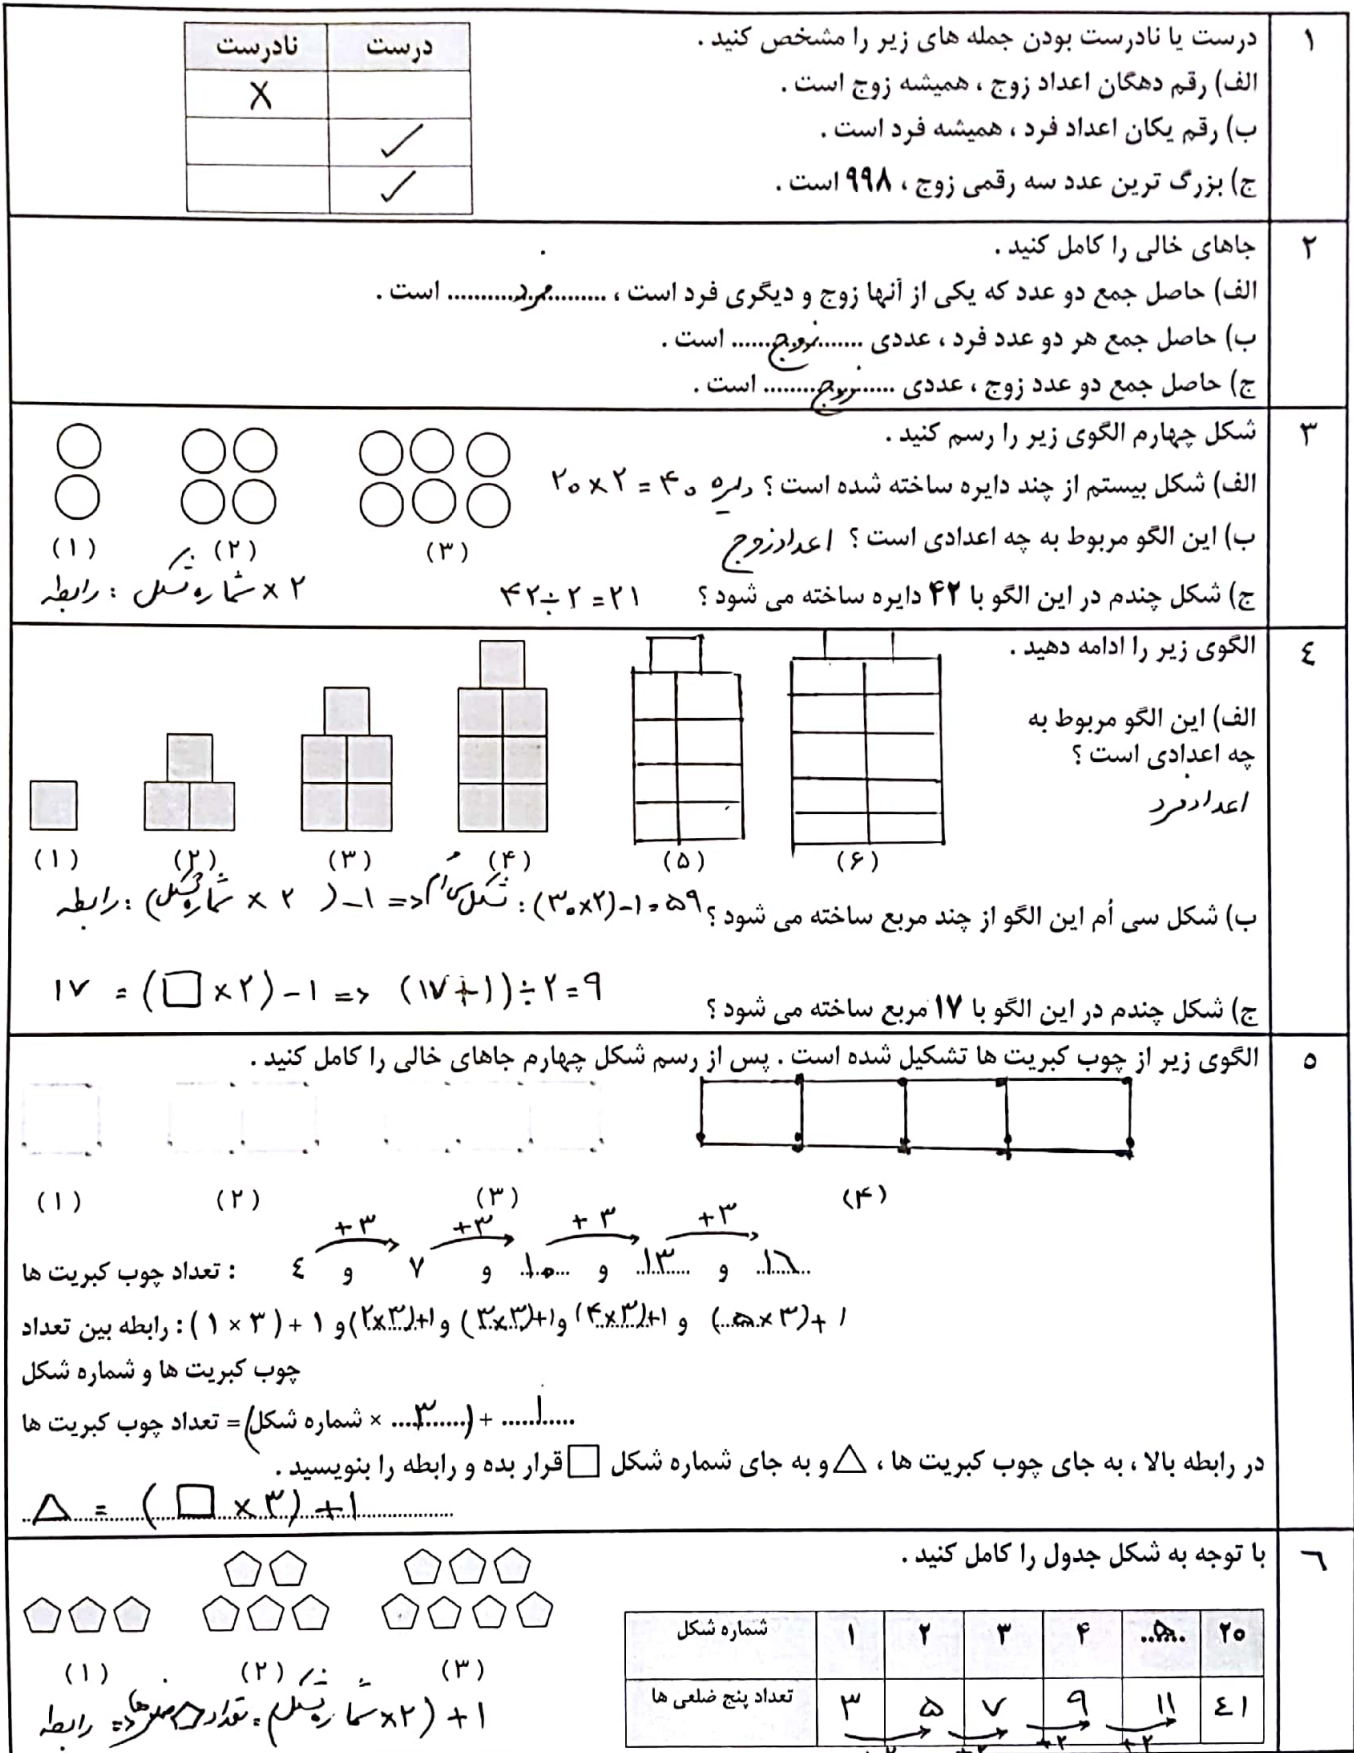 ۱
درست یا نادرست بودن جمله های زیر را مشخص کنید .
درست	نادرست
الف) رقم دهگان اعداد زوج ، همیشه زوج است .	X
ب) رقم یکان اعداد فرد ، همیشه فرد است .	✓
ج) بزرگ ترین عدد سه رقمی زوج ، ۹۹۸ است .	✓
۲
جاهای خالی را کامل کنید .
الف) حاصل جمع دو عدد که یکی از آنها زوج و دیگری فرد است ، .......... فرد .......... است .
ب) حاصل جمع هر دو عدد فرد ، عددی ....... زوج ...... است .
ج) حاصل جمع دو عدد زوج ، عددی ...... زوج ........ است .
۳
شکل چهارم الگوی زیر را رسم کنید .
الف) شکل بیستم از چند دایره ساخته شده است ؟ دایره ۲۰×۲ = ۴۰
ب) این الگو مربوط به چه اعدادی است ؟ اعداد زوج
(۱) (۲) (۳)
ج) شکل چندم در این الگو با ۴۲ دایره ساخته می شود ؟ ۴۲÷۲=۲۱
رابطه : شماره شکل × ۲
٤
الگوی زیر را ادامه دهید .
الف) این الگو مربوط به
چه اعدادی است ؟
اعداد فرد
(۱) (۲) (۳) (۴) (۵) (۶)
ب) شکل سی اُم این الگو از چند مربع ساخته می شود ؟ شکل سی اُم : (۳۰×۲)-۱=۵۹ <= رابطه : (شماره شکل × ۲) -۱
ج) شکل چندم در این الگو با ۱۷ مربع ساخته می شود ؟ ۱۷ = (□×۲)-۱ => (۱۷+۱)÷۲=۹
٥
الگوی زیر از چوب کبریت ها تشکیل شده است . پس از رسم شکل چهارم جاهای خالی را کامل کنید .
(۱) (۲) (۳) (۴)
+۳ +۳ +۳ +۳
تعداد چوب کبریت ها : ٤ و ۷ و ۱۰ و ۱۳ و ۱۶
رابطه بین تعداد : (۱ × ۳) + ۱ و (۲×۳)+۱ و (۳×۳)+۱ و (۴×۳)+۱ و (۵×۳)+۱
چوب کبریت ها و شماره شکل
تعداد چوب کبریت ها = (شماره شکل × ....۳......) + ......۱......
در رابطه بالا ، به جای چوب کبریت ها ، △ و به جای شماره شکل □ قرار بده و رابطه را بنویسید .
△ = (□ × ۳) + ۱
٦
با توجه به شکل جدول را کامل کنید .
(۱) (۲) (۳)
شماره شکل	۱	۲	۳	۴	۵	۲۰
تعداد پنج ضلعی ها	۳	۵	۷	۹	۱۱	٤۱
+۲ +۲ +۲ +۲
رابطه => تعداد ضلعی ها = (شماره شکل ×۲) +۱